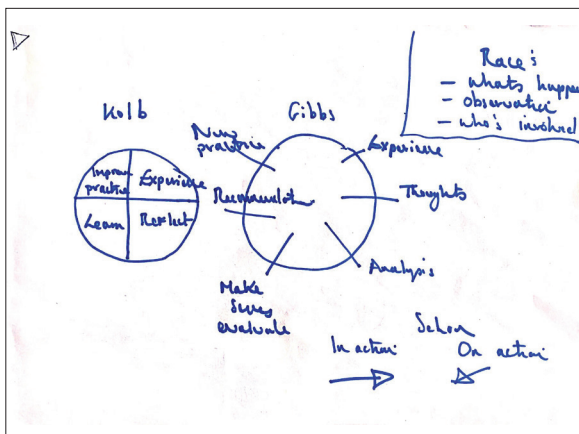 Race's
– whats happen
– observatio
– who's involved
Kolb
Improve
practice
Experience
Learn
Reflect
Gibbs
New
practice
Experience
Thoughts
Analysis
Make
sense
evaluate
Schon
In action
On action